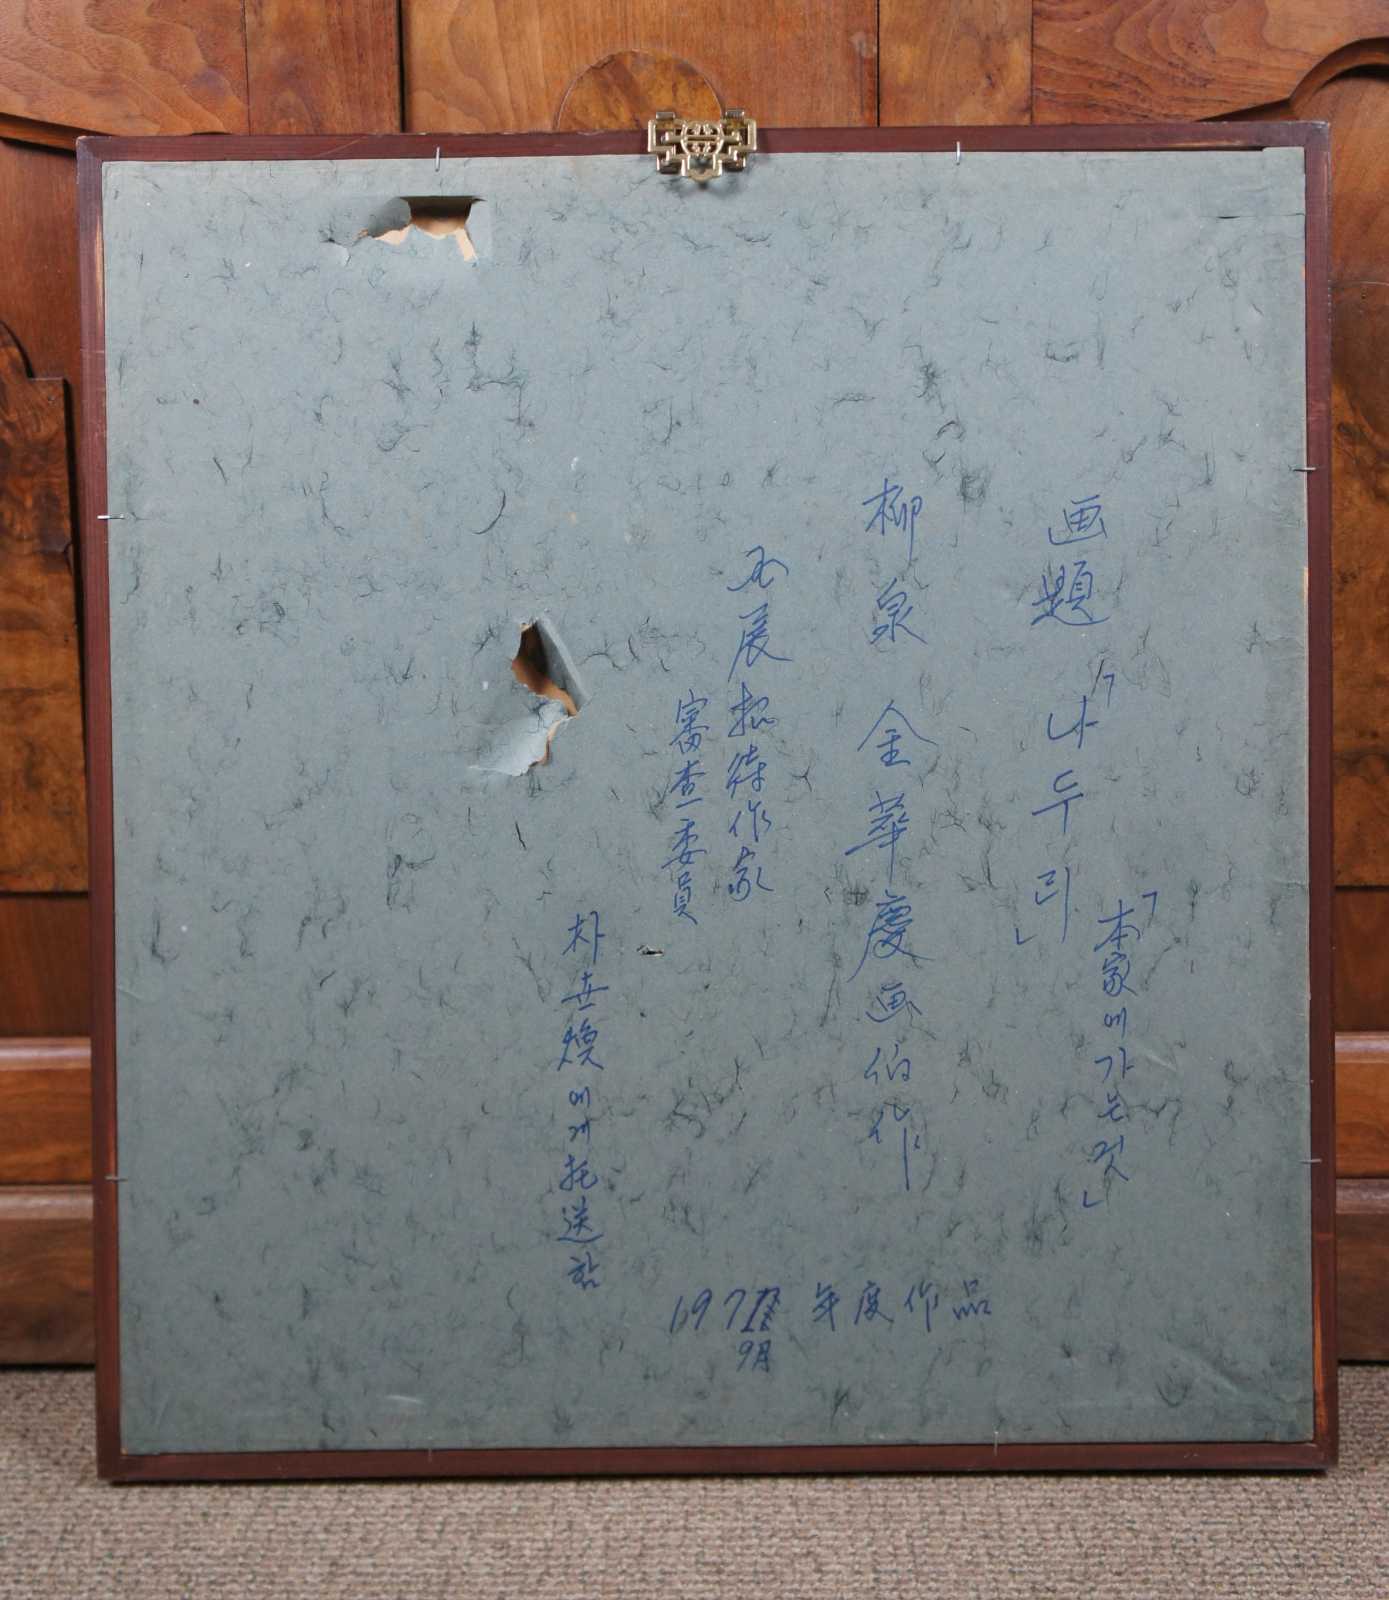 画題「나두리」
「本家에가는것」
柳泉 金華慶画伯作
国展招待作家
審査委員
朴世煥에게托送함
197 年度作品
9月